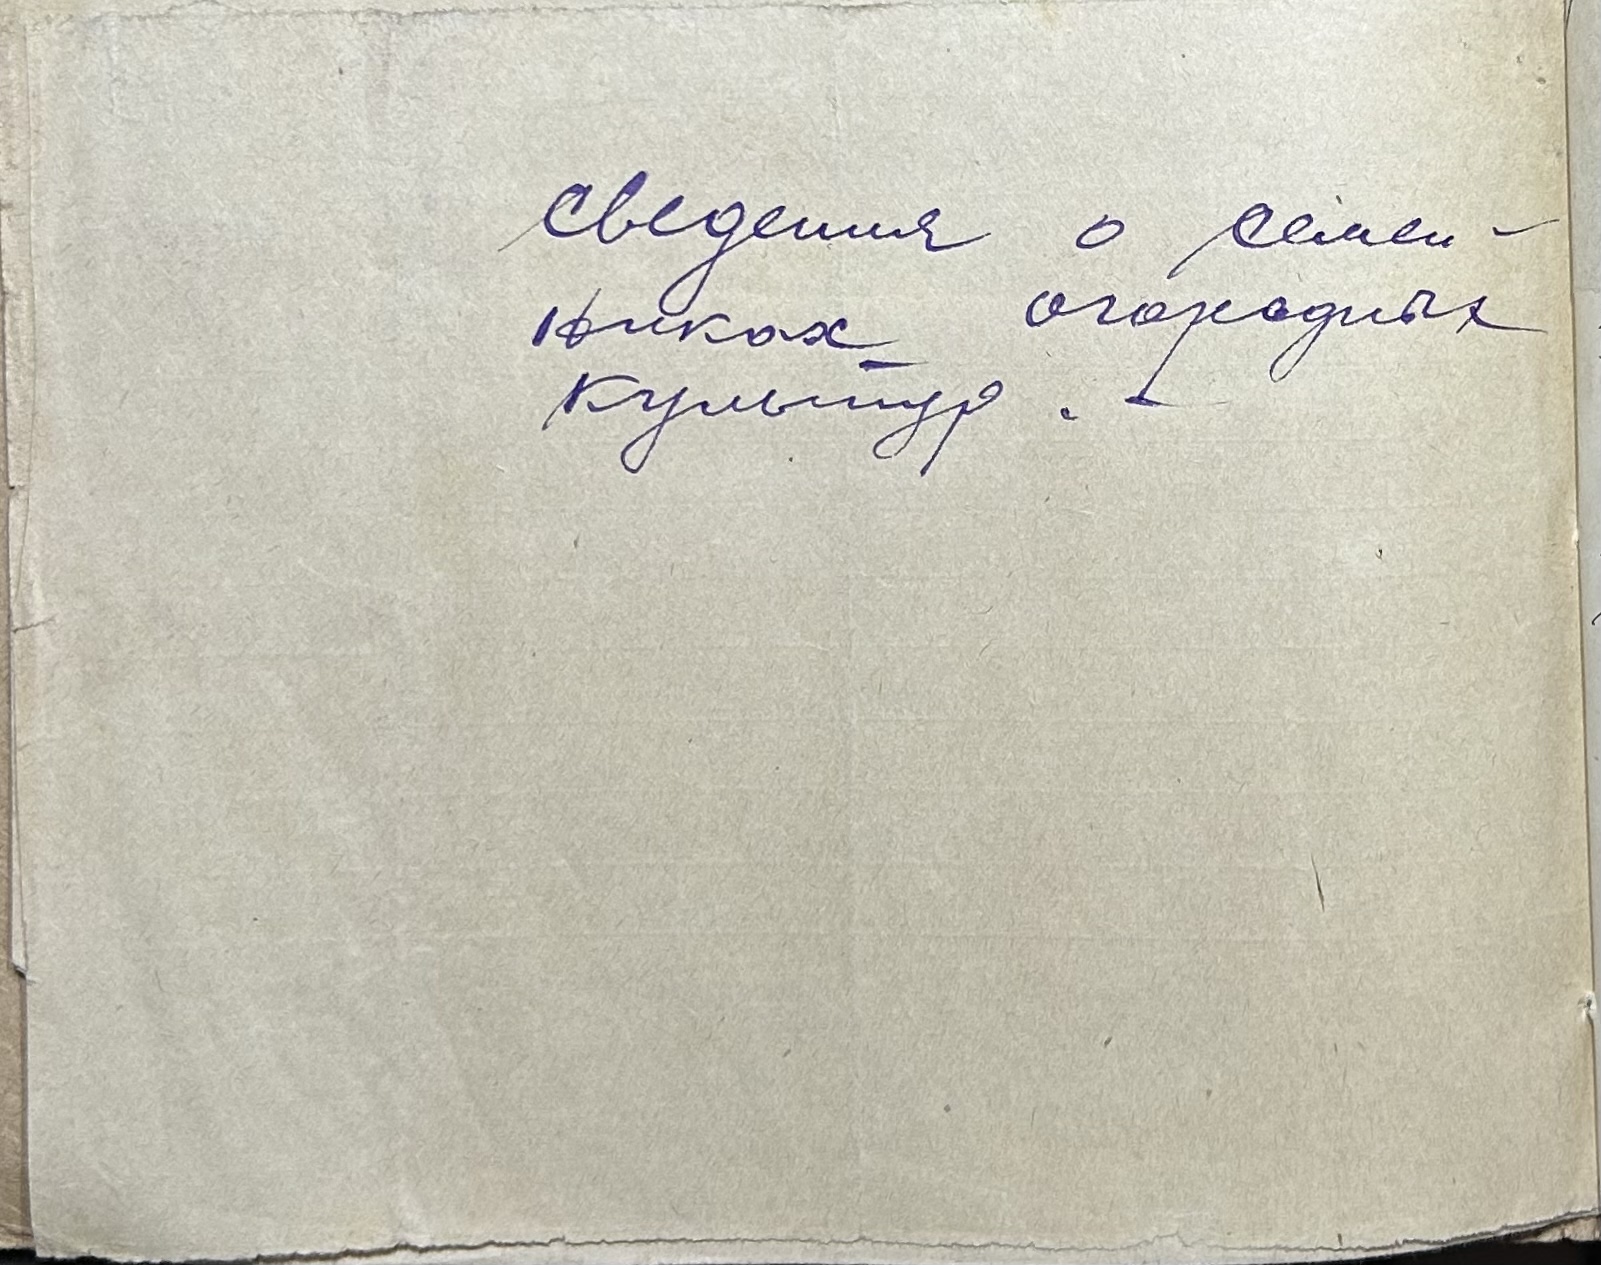 Сведения о семен-
никах огородных
культур. -